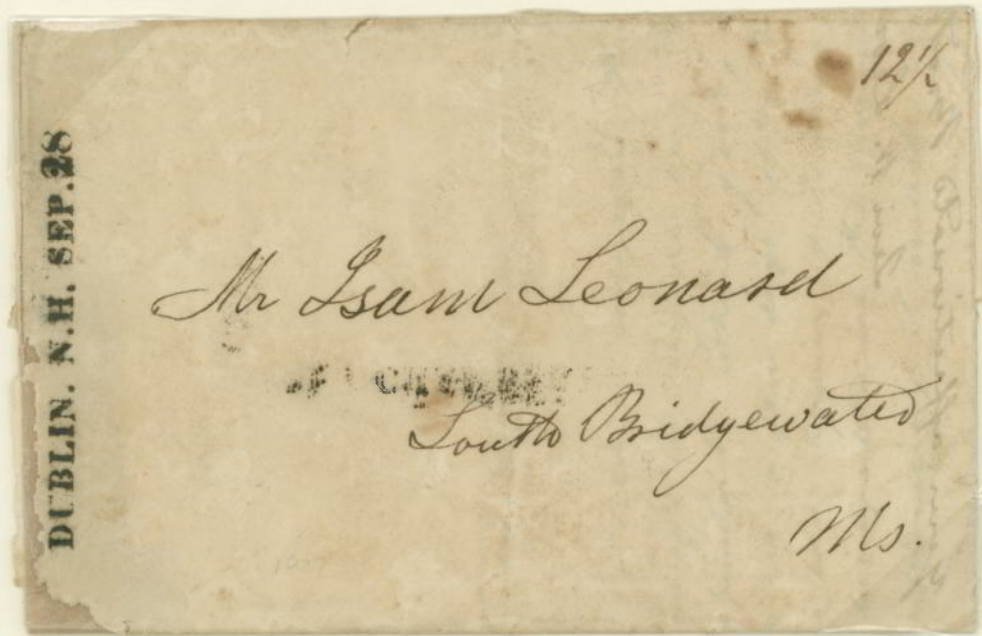 12 1/2
DUBLIN. N.H. SEP. 28
Mr Isam Leonard
South Bridgewater
Ms.